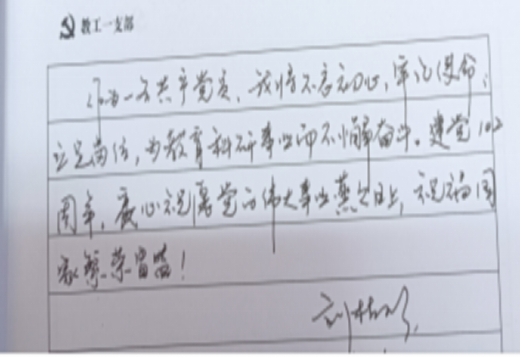 教工一支部
作为一名共产党员,我将不忘初心,牢记使命,
立足岗位,为教育科研事业而不懈奋斗。建党102
周年,衷心祝愿党的伟大事业蒸蒸日上,祝福国
家繁荣富强!